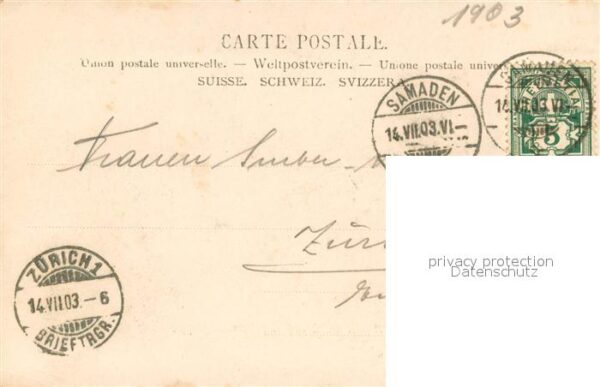 1903
CARTE POSTALE.
Union postale universelle. — Weltpostverein. — Unione postale univer
SUISSE. SCHWEIZ. SVIZZERA
SAMADEN
14.VII.03.VI.—
14.VII.03.VI.—
5
Zür
privacy protection
Datenschutz
ZÜRICH 1
14.VII.03.—6
BRIEFTRGR.